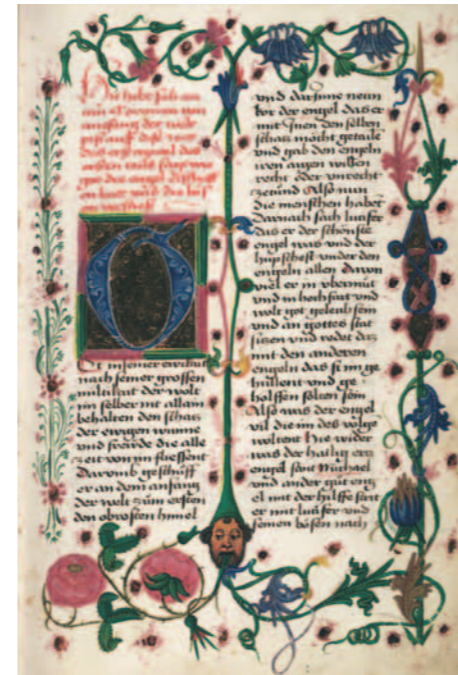 Hie hebt sich an
von anfang der welt
engel
O
Er in seiner ewikait
nach seiner grossen
miltikait der wolt
im selber nit allain
behalten den schatz
der ewigen wunne
und freude die alle
zeit von im fliessent
Darumb geschuff
er an dem anfang
der welt zum ersten
den obrosten himel
und darinne neun
kor der engel das er
mit Jnen den selben
schatz möcht getailē
und gab den engeln
iren aigen willen
recht oder unrecht
ze tund Also nun
die menschen habēt
Darnach sach lucifer
das er der schönste
engel was und der
hüpschest vnder den
engeln allen Davon
viel er in vbermut
vnd in hochfart vnd
wolt got geleich sein
vnd an gottes stat
sitzen vnd redet das
mit den anderen
engeln das si im ge
hullent vnd ge
holffen solten sein
Also was der engel
vil die im des volgē
woltent Hie wider
was der hailig ertz
engel sant Michael
vnd ander gut eng
el mit der hilffe strit
er mit lucifer vnd
seinen bösen nach